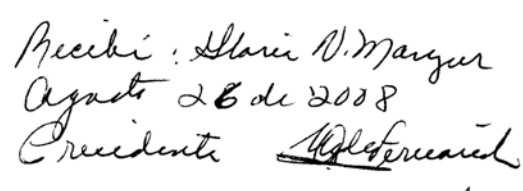 Recibí: Gloria N. Marquez
Agosto 26 de 2008
Presidente